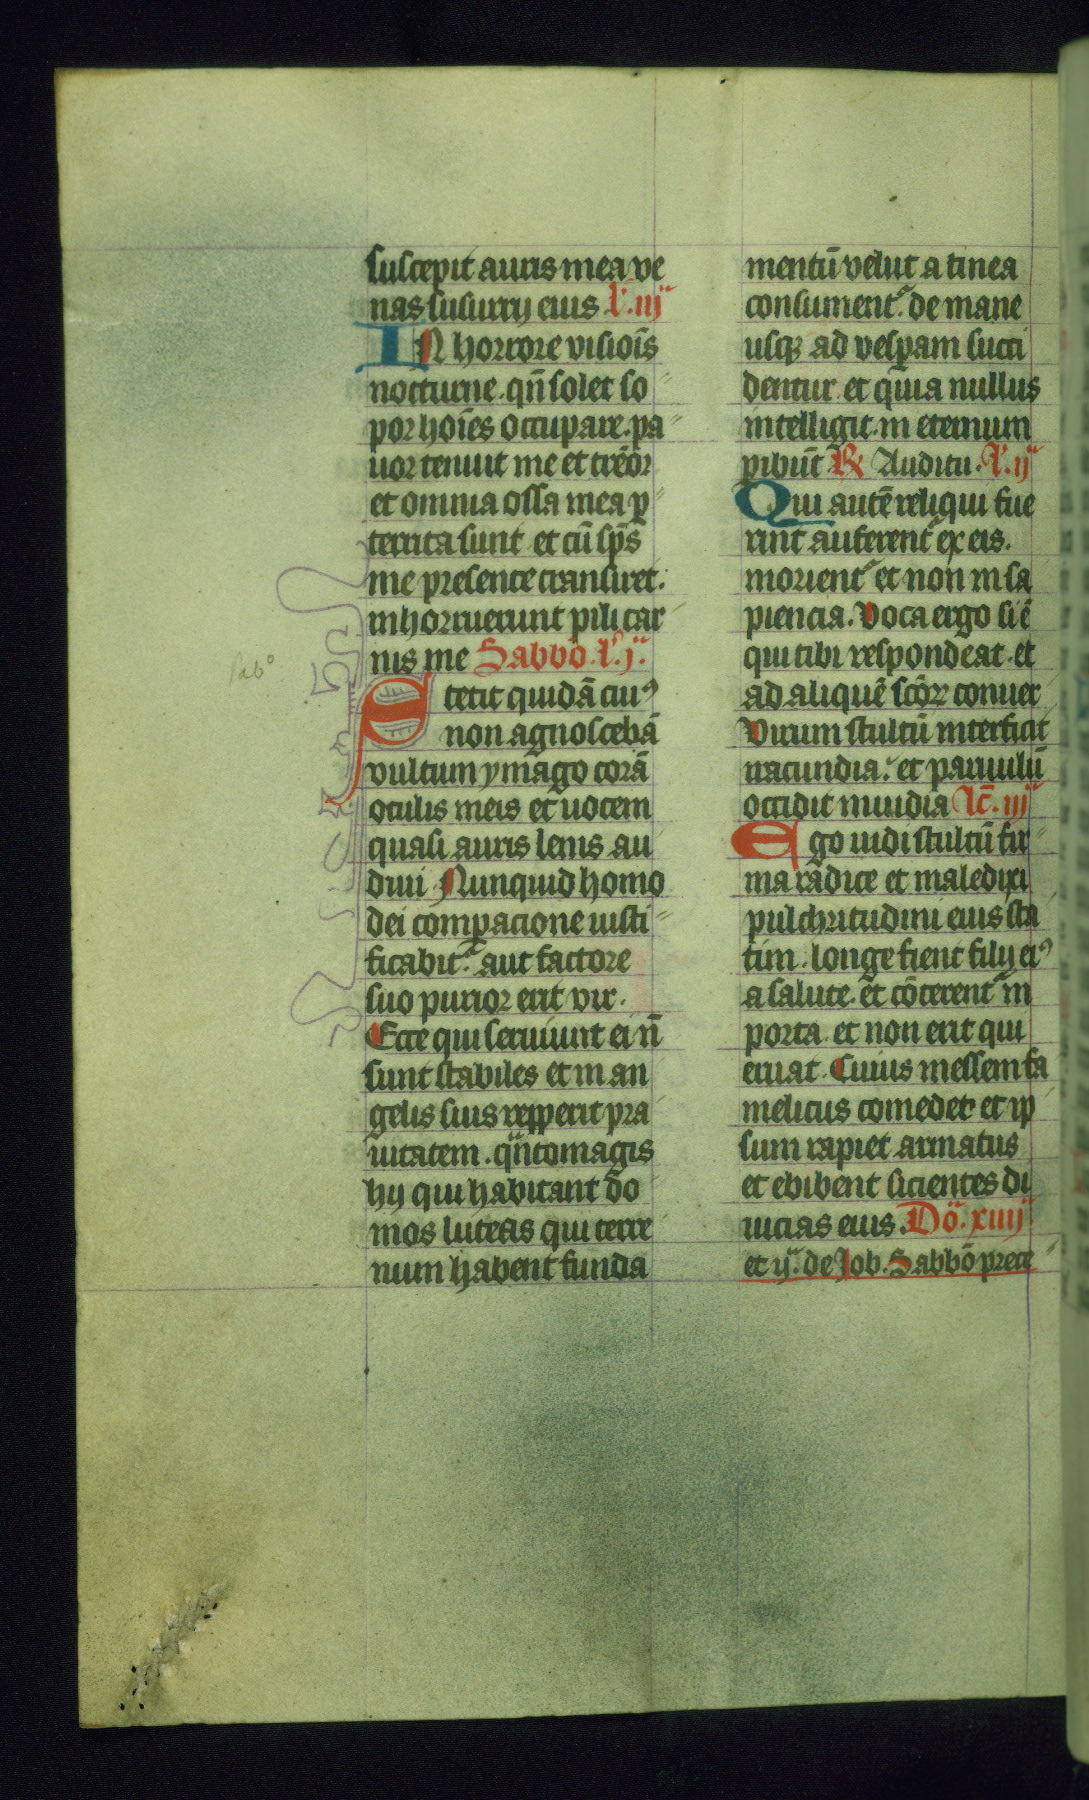 suscepit auris mea ve
nas susurrij eius. l'. iij
IN horrore visiois̄
nocturne. qn̄ solet so
por hoīes occupare. pa
uor tenuit me et tre͞or
et omnia ossa mea ꝑ
territa sunt et cū sp̄s
me presente transiret.
inhorruerunt pili car
nis me Sabbō. l'. j.
Sab°
Stetit quidā cuiꝰ
non agnoscebā
vultum ymago corā
oculis meis et uocem
quasi auris lenis au
diui Nunquid homo
dei compacione iusti
ficabit᷑. aut factore
suo purior erit vir.
Ecce qui seruiunt ei n̄
sunt stabiles et in an
gelis suis repperit pra
uitatem. qn̄tomagis
hij qui habitant do
mos luteas qui terre
num habent funda
mentū velut a tinea
consument᷑. de mane
usqꝫ ad vesꝑam succi
dentur et quia nullus
intelligit. in eternum
ꝑibūt ℟ Auditu. l'. ij
Qui autē reliqui fue
rint auferent᷑ ex eis.
morient᷑ et non in sa
piencia. Voca ergo si ē
qui tibi respondeat. et
ad aliquē sc̄oꝝ conuer
Virum stultū interficit
iracundia. et paruulū
occidit inuidia lc̄. iij
Ego uidi stultū fir
ma radice et maledixi
pulchritudini eius sta
tim. longe fient filij eiꝰ
a salute. et cōterent᷑ in
porta et non erit qui
eruat. Cuius messem fa
melicus comedet et ip
sum rapiet armatus
et ebibent sicientes di
uicias eius. Dō. xiiij
et ij. de Job. Sabbō prece